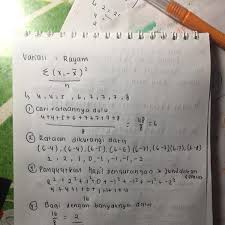 Variasi : Ragam
Σ (xᵢ - x̄)²
n
4, 4, 5, 6, 7, 7, 7, 8
① Cari rataannya dulu
4+4+5+6+7+7+7+8 = 48 = 6
8 8
② Rataan dikurangi data
(6-4), (6-4), (6-5), (6-6), (6-7), (6-7), (6-7), (6-8)
2, 2, 1, 0, -1, -1, -1, -2
③ Pangkatkan hasil pengurangan
2² + 2² + 1² + 0 + -1² + -1² + -1² + -2²
4 + 4 + 1 + 0 + 1 + 1 + 1 + 4
16
④ Bagi dengan banyaknya data
16 = 2
8